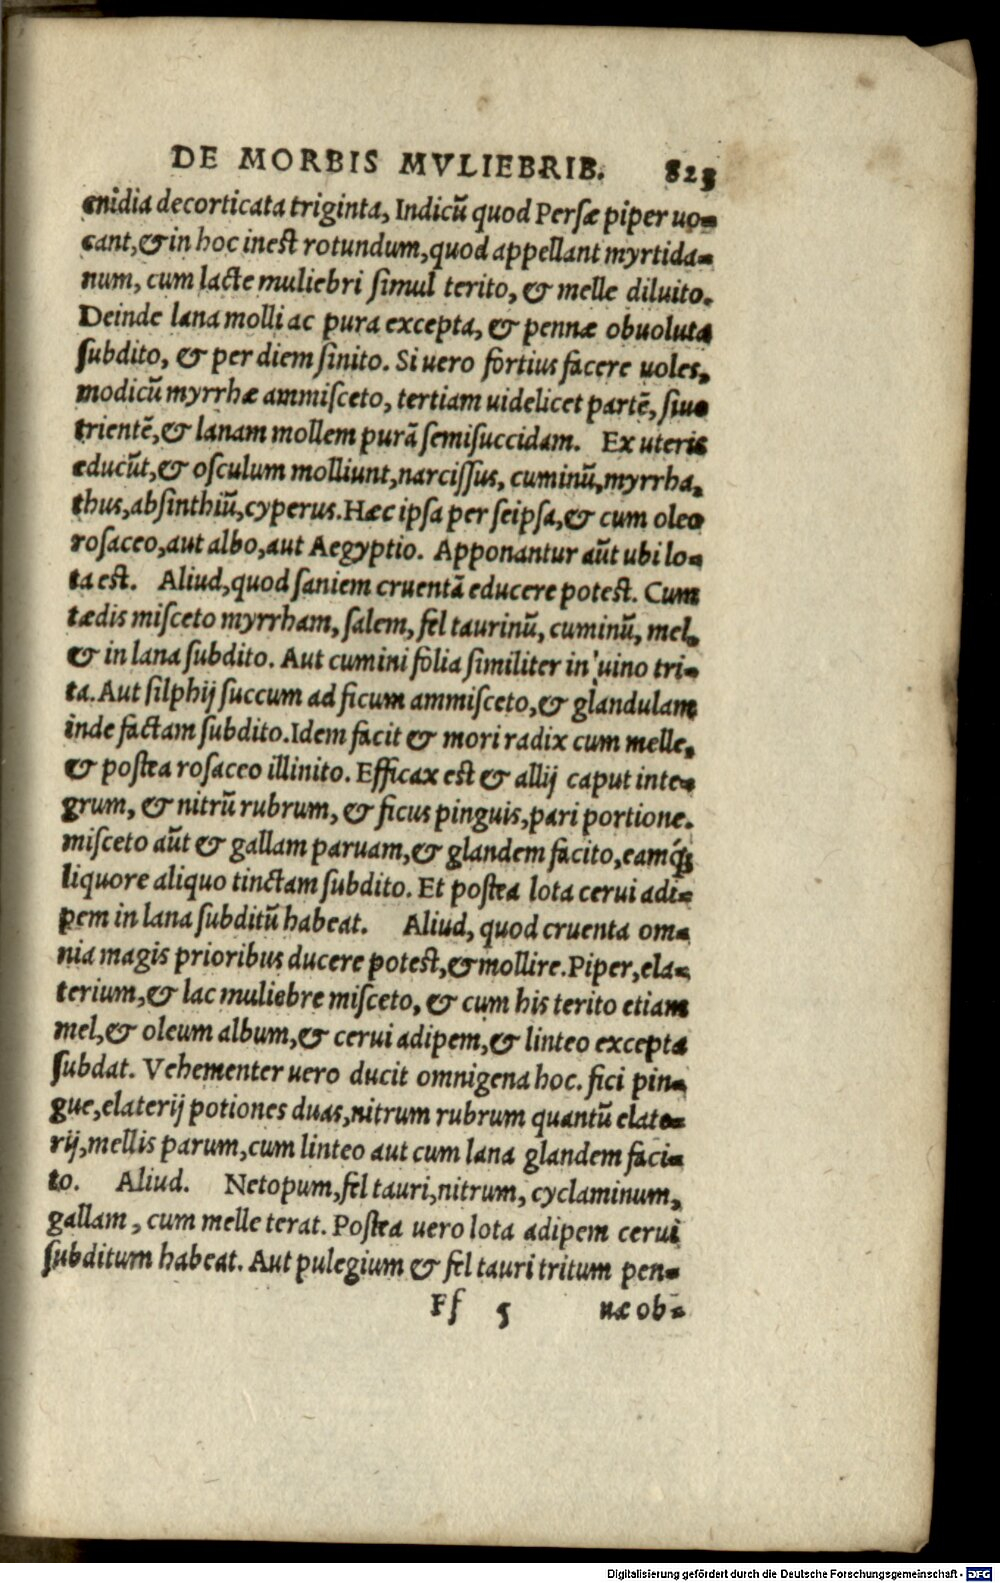 DE MORBIS MVLIEBRIB. 823
cnidia decorticata triginta, Indicū quod Persæ piper uo-
cant, & in hoc inest rotundum, quod appellant myrtida-
num, cum lacte muliebri simul terito, & melle diluito.
Deinde lana molli ac pura excepta, & pennæ obuoluta
subdito, & per diem sinito. Si uero fortius facere uoles,
modicū myrrhæ ammisceto, tertiam uidelicet partē, siue
trientē, & lanam mollem purā semisuccidam. Ex uteris
educūt, & osculum molliunt, narcissus, cuminū, myrrha,
thus, absinthiū, cyperus. Hæc ipsa per seipsa, & cum oleo
rosaceo, aut albo, aut Aegyptio. Apponantur aūt ubi lo-
ta est. Aliud, quod saniem cruentā educere potest. Cum
tædis misceto myrrham, salem, fel taurinū, cuminū, mel,
& in lana subdito. Aut cumini folia similiter in uino tri-
ta. Aut silphij succum ad ficum ammisceto, & glandulam
inde factam subdito. Idem facit & mori radix cum melle,
& postea rosaceo illinito. Efficax est & allij caput inte-
grum, & nitrū rubrum, & ficus pinguis, pari portione.
misceto aūt & gallam paruam, & glandem facito, eamq́;
liquore aliquo tinctam subdito. Et postea lota cerui adi-
pem in lana subditū habeat. Aliud, quod cruenta om-
nia magis prioribus ducere potest, & mollire. Piper, ela-
terium, & lac muliebre misceto, & cum his terito etiam
mel, & oleum album, & cerui adipem, & linteo excepta
subdat. Vehementer uero ducit omnigena hoc. fici pin-
gue, elaterij potiones duas, nitrum rubrum quantū elate-
rij, mellis parum, cum linteo aut cum lana glandem faci-
to. Aliud. Netopum, fel tauri, nitrum, cyclaminum,
gallam, cum melle terat. Postea uero lota adipem cerui
subditum habeat. Aut pulegium & fel tauri tritum pen-
Ff 5 næ ob-
Digitalisierung gefördert durch die Deutsche Forschungsgemeinschaft - DFG